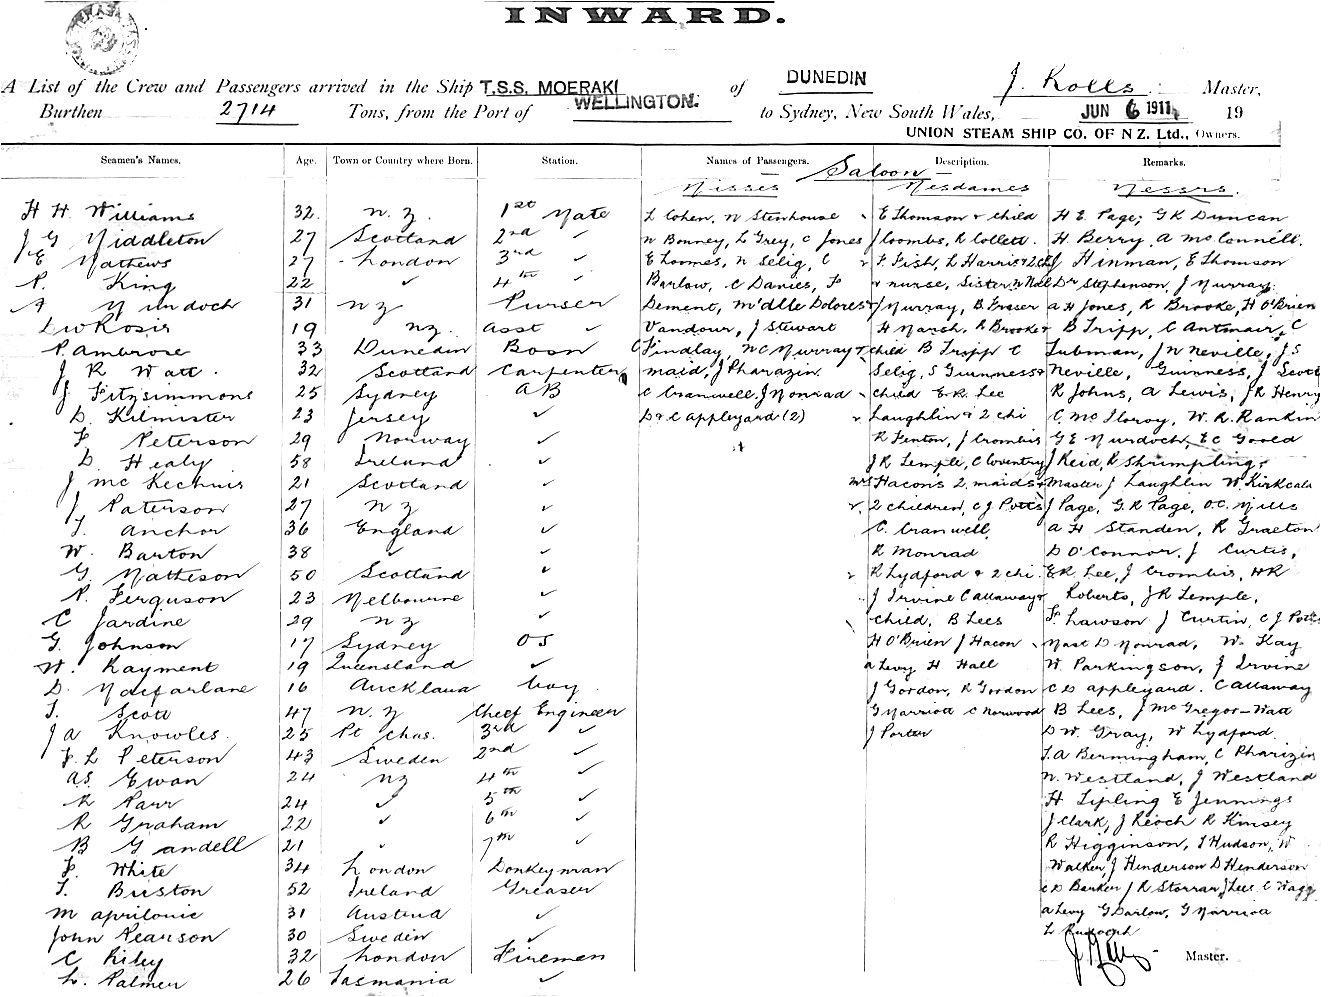 INWARD.
A List of the Crew and Passengers arrived in the Ship T.S.S. MOERAKI of DUNEDIN J. Rolls Master,
Burthen 2714 Tons, from the Port of WELLINGTON. to Sydney, New South Wales, JUN 6 1911 19
UNION STEAM SHIP CO. OF N Z. Ltd., Owners.
Seamen's Names. Age. Town or Country where Born. Station. Names of Passengers. Description. Remarks.
Saloon
Misses Mesdames Messrs.
H H. Williams 32. N. Z. 1st Mate L Cohen, N Stenhouse E Thomson & child H E. Page; G K Duncan
J G Middleton 27 Scotland 2nd ✓ N Bonney, L Grey, C Jones J Coombs, R Collett. H Berry, A McConnell.
J E Mathews 27 London 3rd ✓ E Loomes, N Selig, C F. Fish, L Harris & 2 ch J Hinman, E Thomson
P. King 22 ✓ 4th ✓ Barlow, C Davies, F & nurse, Sister Dr Stephenson, J Murray.
A Murdoch 31 NZ Purser Dement, M'dlle Dolores J Murray, B Fraser A H Jones, R Brooke, H O'Brien
19 NZ. Asst ✓ Vandour, J Stewart H Marsh, R Brooke & B Tripp, C C
P. Ambrose 33 Dunedin Bosn Findlay, W C Murray & child B Tripp C Lubman, J N Neville, J S
J R Watt. 32 Scotland Carpenter maid, J Pharazin Selig, S Guinness & Neville, Guinness, J Scott
J. Fitzsimmons 25 Sydney A B C Cranwell, J Monrad child E.R. Lee R Johns, A Lewis, J R Henry
D. Kilmister 23 Jersey ✓ D & C Appleyard (2) Laughlin & 2 chi C McIlroy, W. R. Rankin
F Peterson 29 Norway ✓ R Fenton, J Crombie G E Murdoch, E C Goold
D. Healy 58 Ireland ✓ J R Temple, C Coventry J Reid, R Shrimpling,
J McKechnie 21 Scotland ✓ Mrs Hacons 2 maids & Master J Laughlin W. Kirkcale
J. Paterson 27 N Z ✓ 2 children, C J Potts J Page, G. R Page, O.C. Mills
T. Anchor 36 England ✓ C. Cranwell, A H Standen, R Graeton
W. Barton 38 ✓ ✓ R Monrad D O'Connor, J Curtis,
G. Matheson 50 Scotland ✓ R Lydford & 2 chi. E R. Lee, J Crombie, H R
P. Ferguson 23 Melbourne ✓ J Irvine Callaway & Roberts, J R Temple,
C Jardine 29 NZ ✓ child, B Lees F. Lawson J Curtin, C J Potts
G. Johnson 17 Sydney OS H O'Brien J Hacon Mast D Monrad, W. Kay
W. Rayment 19 Queensland ✓ A Levy H Hall W. Parkingson, J Irvine
D. Macfarlane 16 Auckland boy. J Gordon, R Gordon C D Appleyard. C Allaway
T. Scott 47 N. Z Chief Engineer G Marriott C Norwood B Lees, J McGregor-Watt
J A Knowles. 25 Pt Chas. 3rd ✓ J Porter D W. Gray, W Lydford.
F. L Peterson 43 Sweden 2nd ✓ T. A Bermingham, C Pharazin
A S Ewan 24 NZ 4th ✓ N. Westland, J Westland
R Parr 24 ✓ 5th ✓ H Lipling E Jennings
R Graham 22 ✓ 6th ✓ J Clark, J Reoch R Kimsey
B Gandell 21 ✓ 7th ✓ R Higginson, T Hudson, W
F. White 34 London Donkeyman Walker, J Henderson D Henderson
T. Buston 52 Ireland Greaser C D Barker J R Storrar J Lee. C Wagg
M Aprilonic 31 Austria ✓ A Levy G Barlow, G Marriott
John Pearson 30 Sweden ✓ L Rudolph
C Riley 32 London Firemen Master.
L. Palmer 26 Tasmania ✓